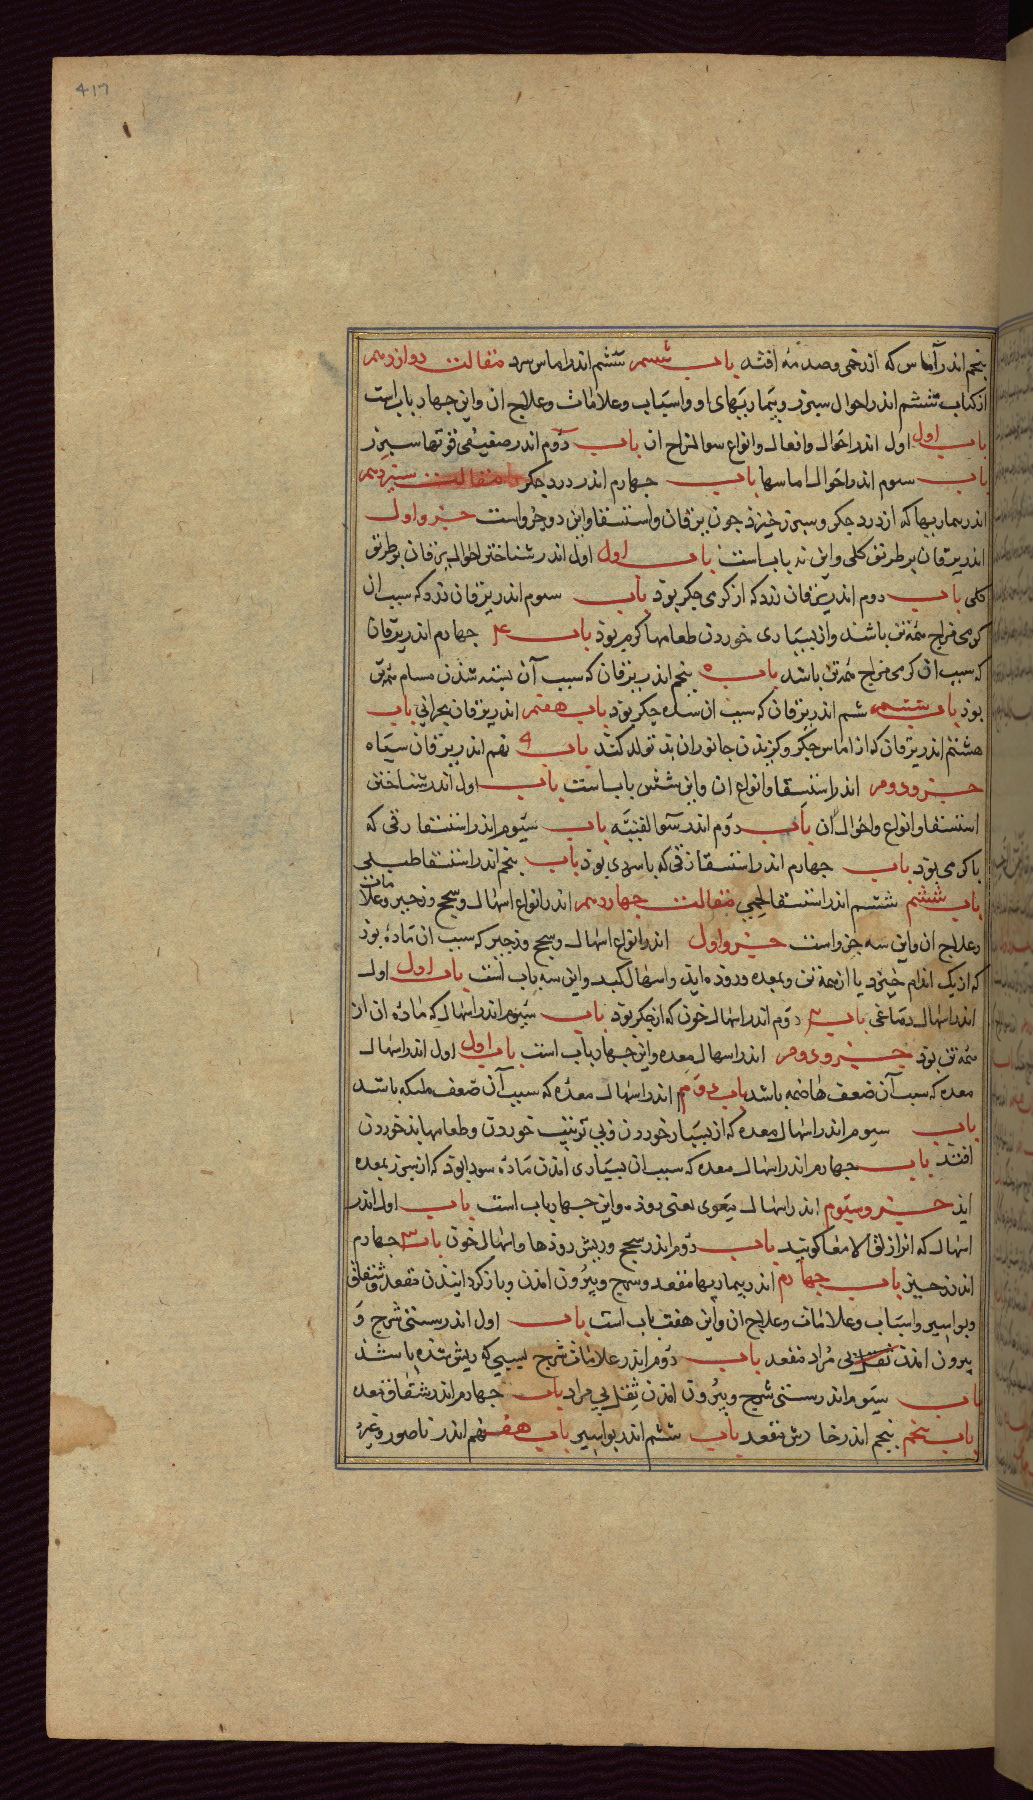 417
پنجم اندر آماس که از زخمی و صدمه افتد باب ششم ششم اندر اماس سرد مقالت دوازدهم
از کتاب ششم اندر احوال سپرز و بیماریهای او و اسباب و علامات و علاج ان و این چهار باب است
باب اول اول اندر احوال و افعال و انواع سوالمزاج ان باب دوم اندر ضعیفی قوتها سپرز
باب سوم اندر احوال اماسها باب چهارم اندر درد جکر مقالت سیزدهم
اندر بیماریها که از درد جکر و سپرز خیزد چون یرقان و استسقا و این دو جزو است جزو اول
اندر یرقان بر طریق کلی و این نه باب است باب اول اول اندر شناختن احوال یرقان بر طریق
کلی باب دوم اندر یرقان زرد که از کرمی جکر بوذ باب سوم اندر یرقان زرد که سبب ان
کرمی مزاج همه تن باشد و از بسیاری خوردن طعامها کرم بوذ باب ۴ چهارم اندر یرقان
که سبب ان کرمی مزاج همه تن باشد باب ۵ پنجم اندر یرقان که سبب آن بسته شذن مسام همه تن
بوذ باب ششم ششم اندر یرقان که سبب ان سده جکر بوذ باب هفتم اندر یرقان بحرانی باب
هشتم اندر یرقان که از اماس جکر و کزیذن جانوران بذ تولد کند باب ۹ نهم اندر یرقان سیاه
جزو دوم اندر استسقا و انواع ان و این شش باب است باب اول اندر شناختن
استسقا و انواع و احوال ان باب دوم اندر سوالقنیه باب سیوم اندر استسقا زقی که
با کرمی بوذ باب چهارم اندر استسقا زقی که با سردی بوذ باب پنجم اندر استسقا طبلی
باب ششم ششم اندر استسقا لحمی مقالت چهاردهم اندر انواع اسهال و سحج و زحیر و علامات
و علاج ان و این سه جزو است جزو اول اندر انواع اسهال و سحج و زحیر که سبب ان ماده بوذ
که از یک اندام خیزد یا از همه تن و بمعده و روذه ایذ و اسهال کند و این سه باب است باب اول اول
اندر اسهال دماغی باب ۲ دوم اندر اسهال خون که از جکر بوذ باب سیوم اندر اسهال که ماده ان از
همه تن بوذ جزو دوم اندر اسهال معده و این چهار باب است باب اول اول اندر اسهال
معده که سبب آن ضعف هاضمه باشد باب دوم اندر اسهال معده که سبب آن ضعف ماسکه باشد
باب سیوم اندر اسهال معده که از بسیار خوردن و بی ترتیب خوردن و طعامها بذ خوردن
افتد باب چهارم اندر اسهال معده که سبب ان بسیاری امذن ماده سودا بوذ که از سپرز بمعده
ایذ جزو سیوم اندر اسهال معوی یعنی روذه و این چهار باب است باب اول اندر
اسهال که انرا زلق الامعا کویند باب دوم اندر سحج و ریش روذها و اسهال خون باب ۳ چهارم
اندر زحیر باب چهارم اندر بیماریها مقعد و سرج و بیرون امذن و باز کردانیذن مقعد و شقاق
و بواسیر و اسباب و علامات و علاج ان و این هفت باب است باب اول اندر سستی شرج و
بیرون امذن ثفل بی مراد مقعد باب دوم اندر علامات شرج بسببی که ریش شده باشد
باب سیوم اندر سستی شرج و بیرون امذن ثفل بی مراد باب چهارم اندر شقاق مقعد
باب پنجم پنجم اندر خارش مقعد باب ششم اندر بواسیر باب هفتم اندر ناصور و غیره